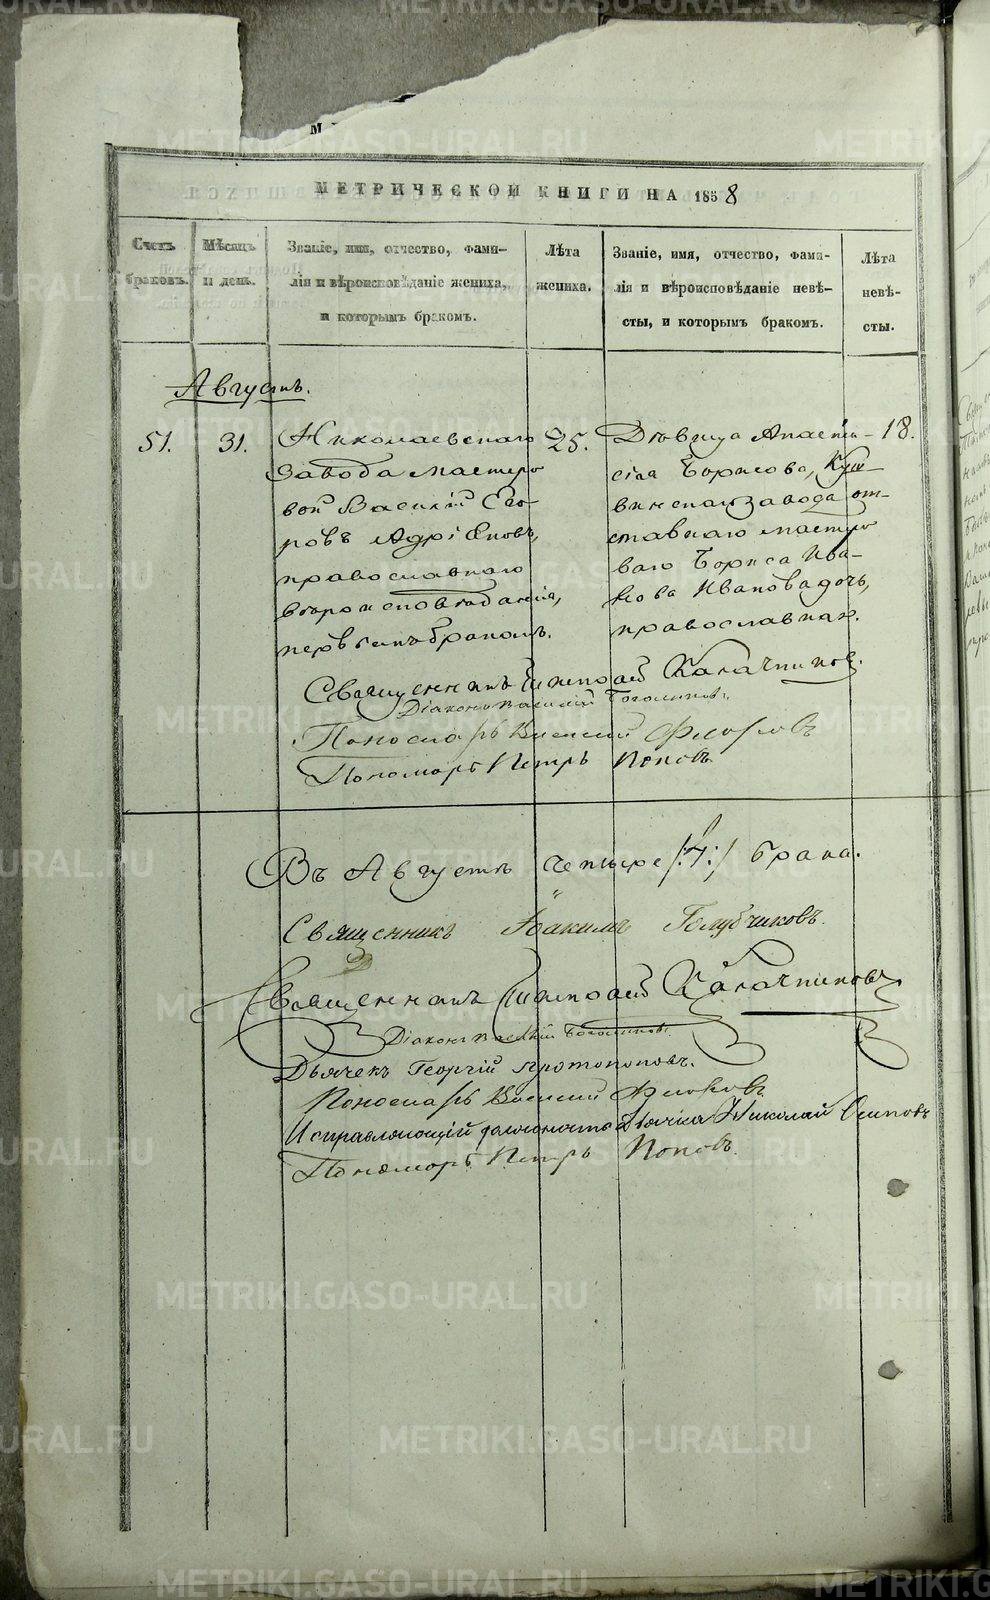 МЕТРИЧЕСКОЙ КНИГИ НА 1858
Счетъ браковъ.
Мѣсяцъ и день.
Званіе, имя, отчество, фами-
лія и вѣроисповѣданіе жениха,
и которымъ бракомъ.
Лѣта
жениха.
Званіе, имя, отчество, фами-
лія и вѣроисповѣданіе невѣ-
сты, и которымъ бракомъ.
Лѣта
невѣ-
сты.
Августъ.
51.
31.
Николаевскаго
завода мастеро
вой Василій Его
ровъ Адріяновъ,
православнаго
вѣроисповѣданія,
первымъ бракомъ.
25.
Дѣвица Анаста-
сія Борисова, Куш
винскаго завода от-
ставнаго мастеро
ваго Бориса Ива-
нова Иванова дочь,
православная.
18.
Священникъ Калачниковъ.
Діаконъ Василій Боголеповъ.
Пономарь Василій Флоровъ
Пономарь Петръ Поповъ
Въ Августѣ четыре /:4:/ брака.
Священникъ Іакимъ Голубчиковъ.
Священникъ Калачниковъ
Діаконъ Василій Боголеповъ.
Дьячекъ Георгій Протопоповъ.
Пономарь Василій Флоровъ
Исправляющій должность Дьячка Николай Осиповъ
Пономарь Петръ Поповъ.
METRIKI.GASO-URAL.RU